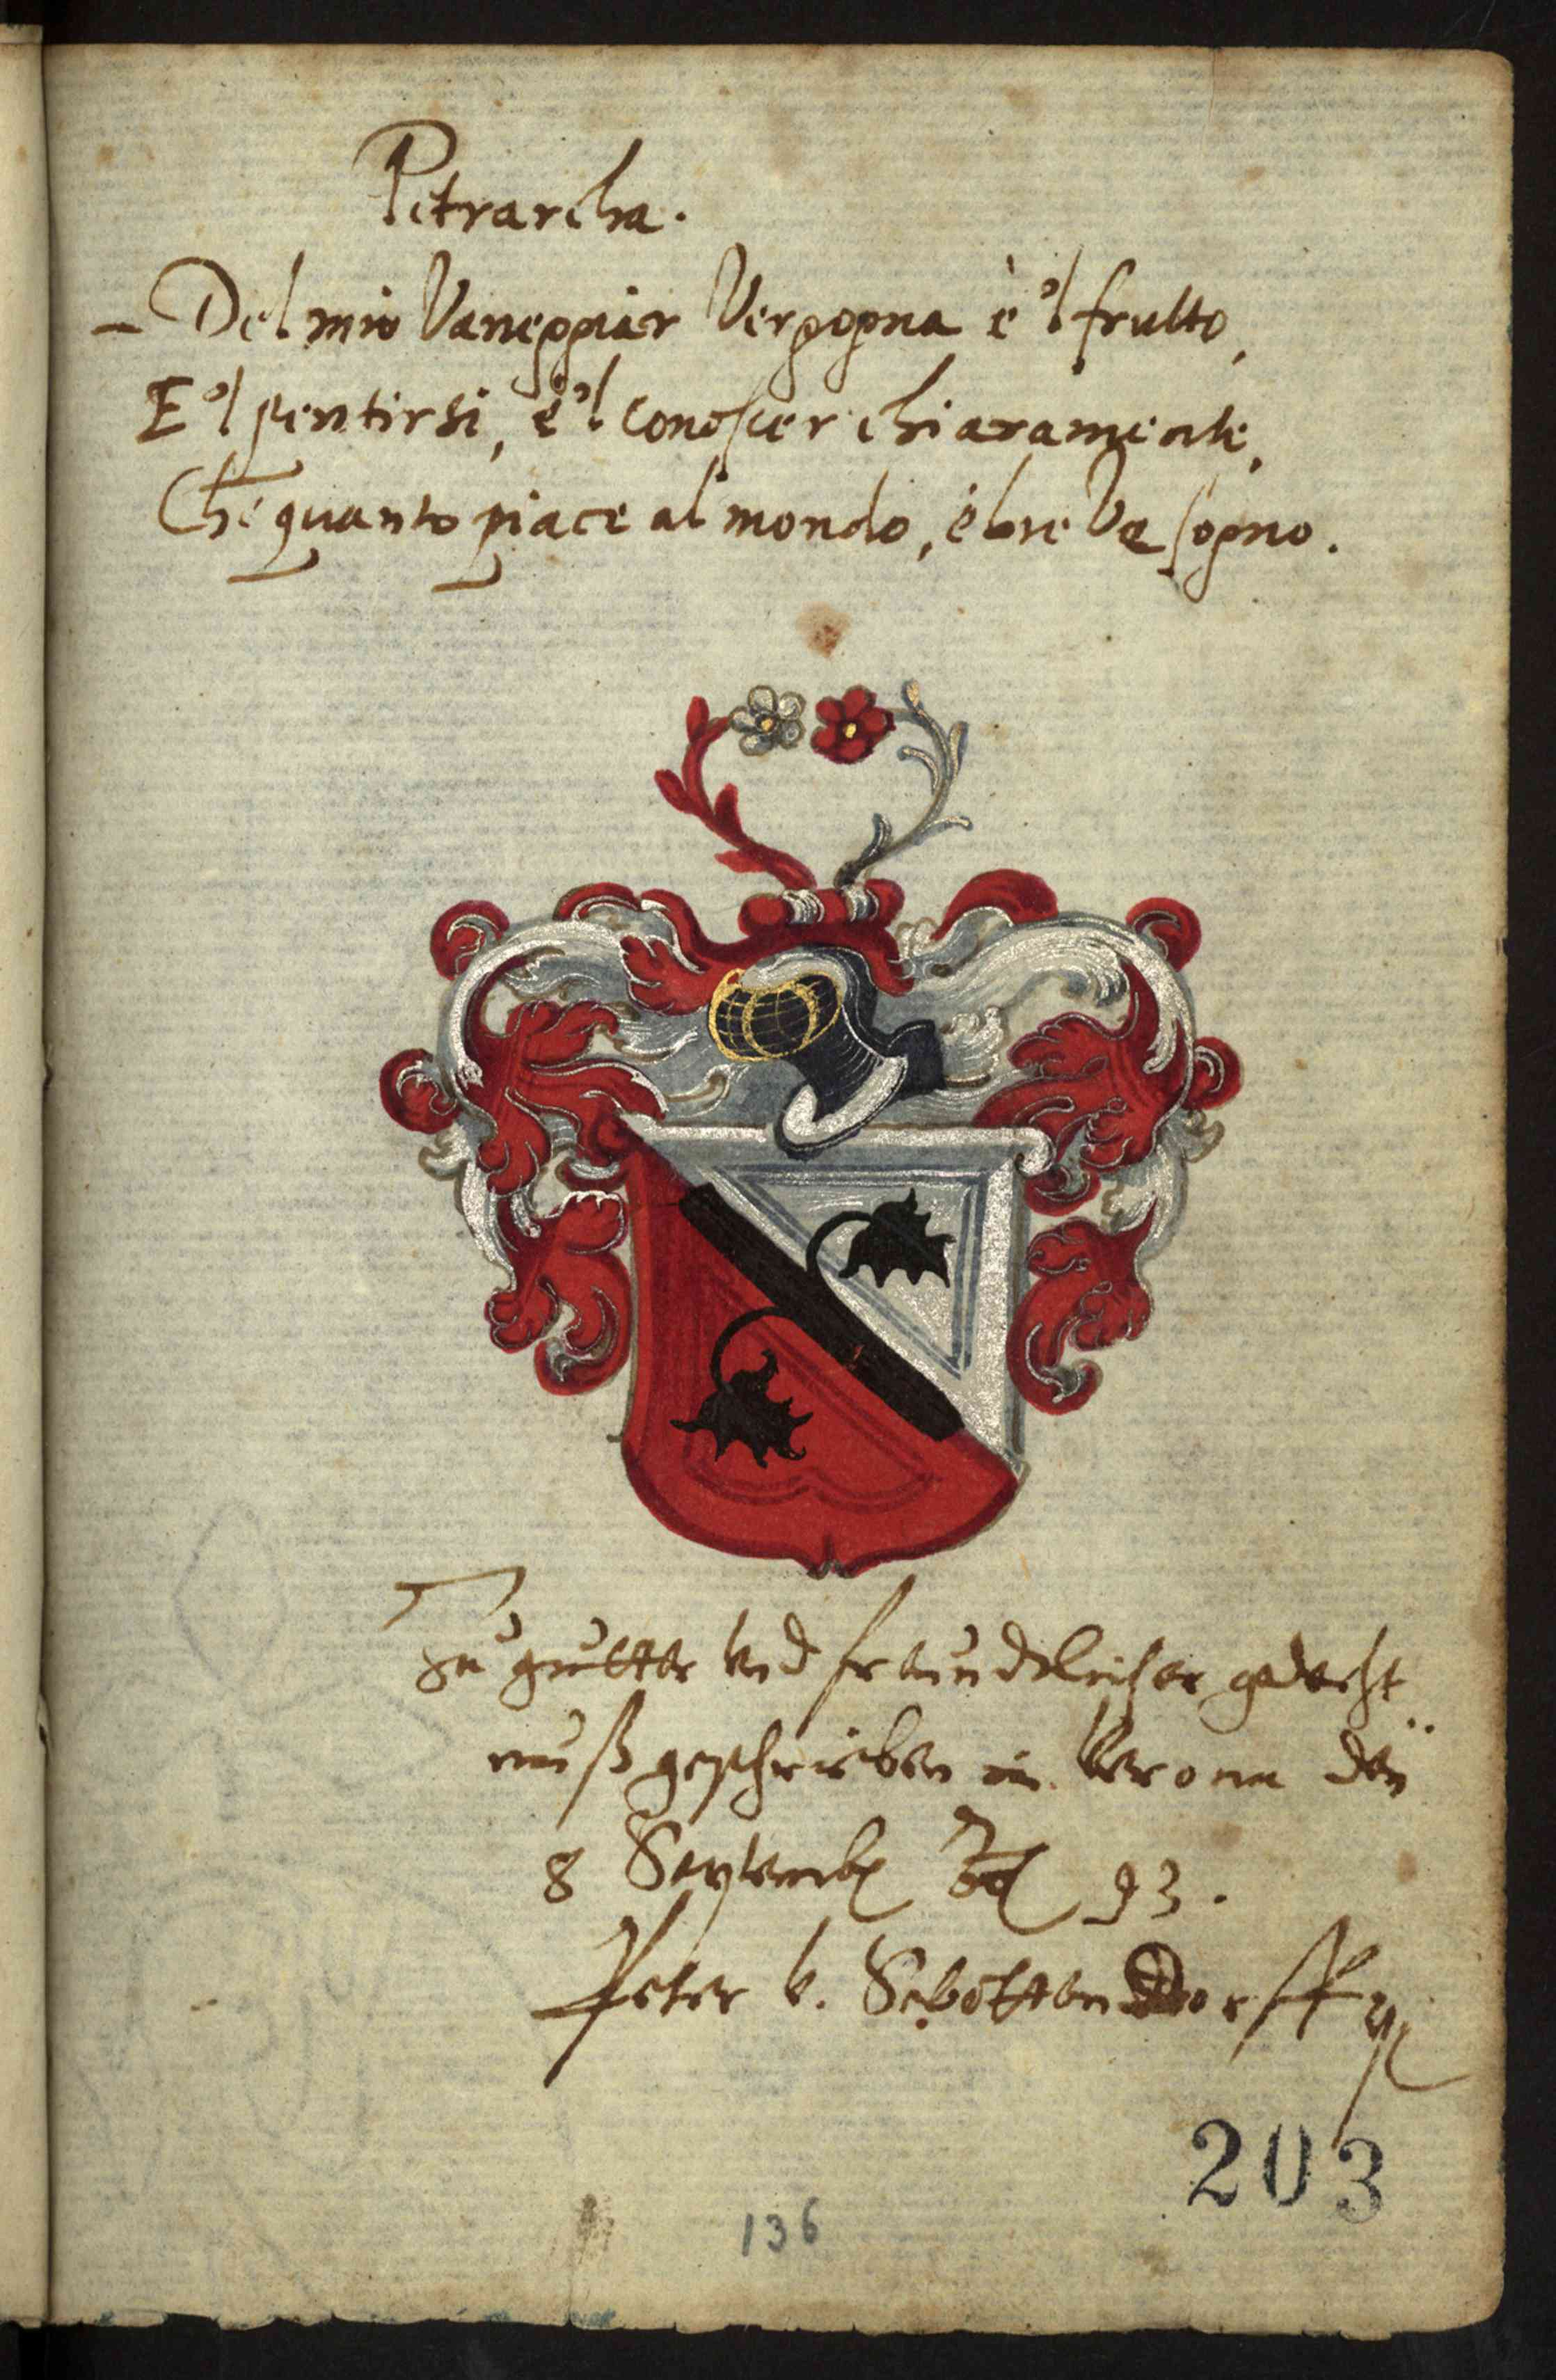 Petrarcha.
– Del mio Vaneggiar Vergogna è 'l frutto,
E 'l pentirsi, e 'l conoscer chiaramente,
Che quanto piace al mondo, è breve sogno.
Zu gutter vnd freundtlicher gedecht
nuß geschrieben in Verona den
8 Septemb 93.
Peter v. Sebottendorff
203
136